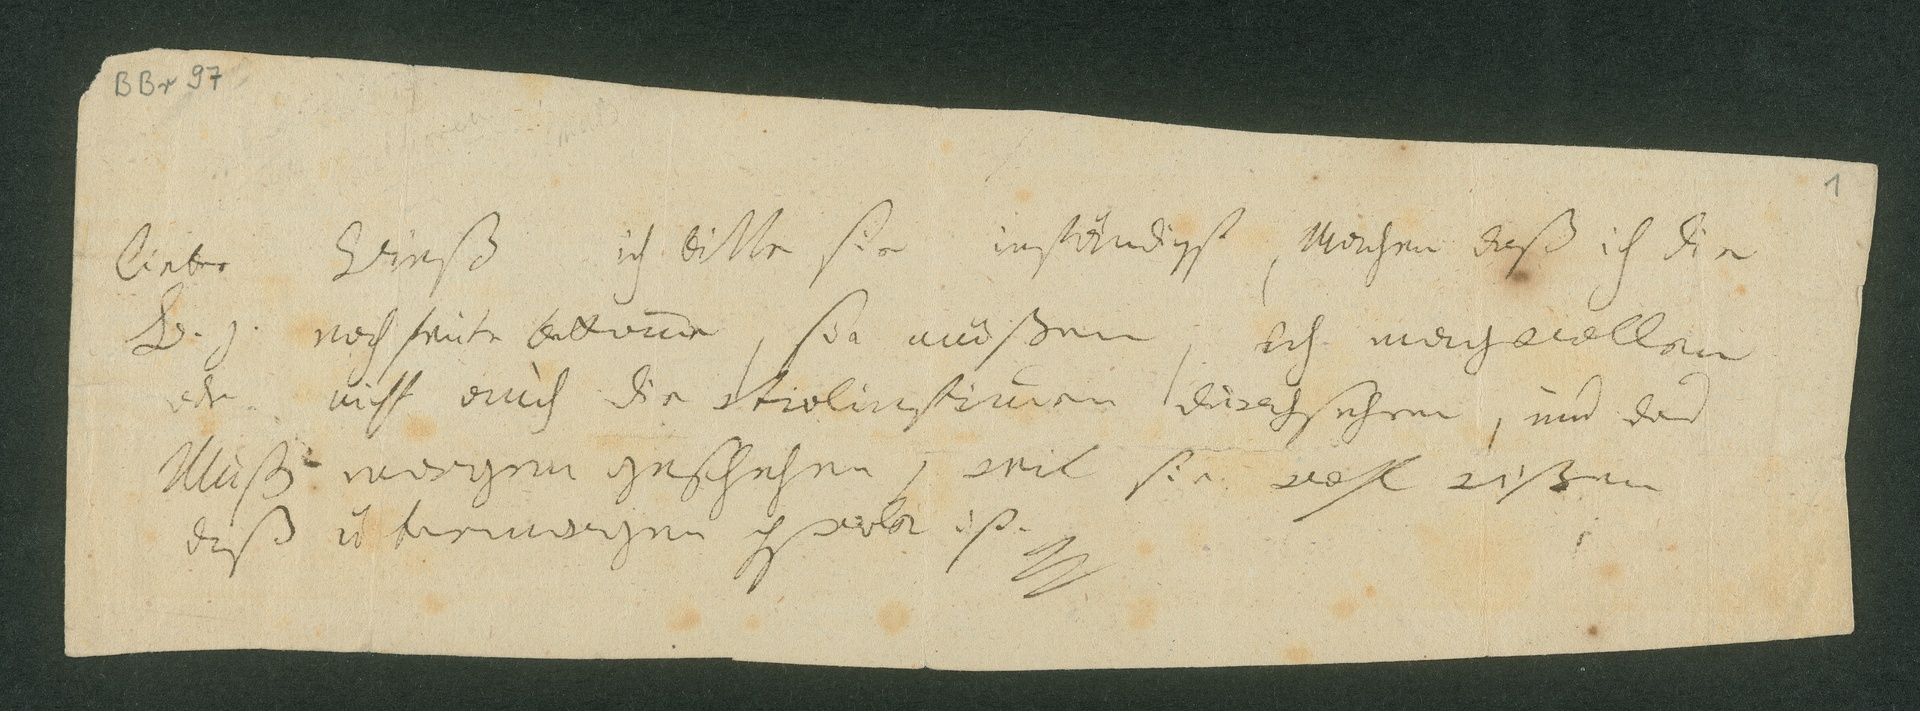 BBr 97
1
lieber Win̄ß ich bitte sie inständigst, Machen daß ich die
noch heute bekom̄e, sie müßen, ich mag wollen
oder nicht auch die Violinstim̄en durchsehen, und das
Muß morgen geschehen, weil sie wohl wißen
daß übermorgen probe ist.